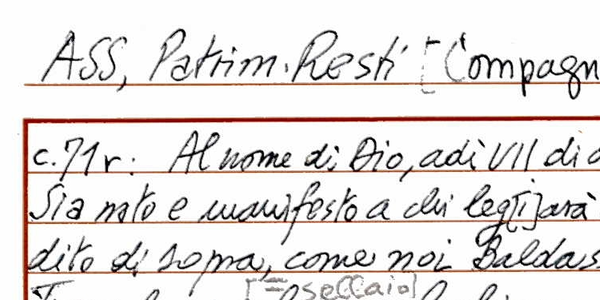 ASS, Patrim. Resti [Compagn
c. 71r: Al nome di Dio, adì VII di
Sia noto e manifesto a chi leg[i]arà
dito di sopra, come noi Baldas
[= sellaio]